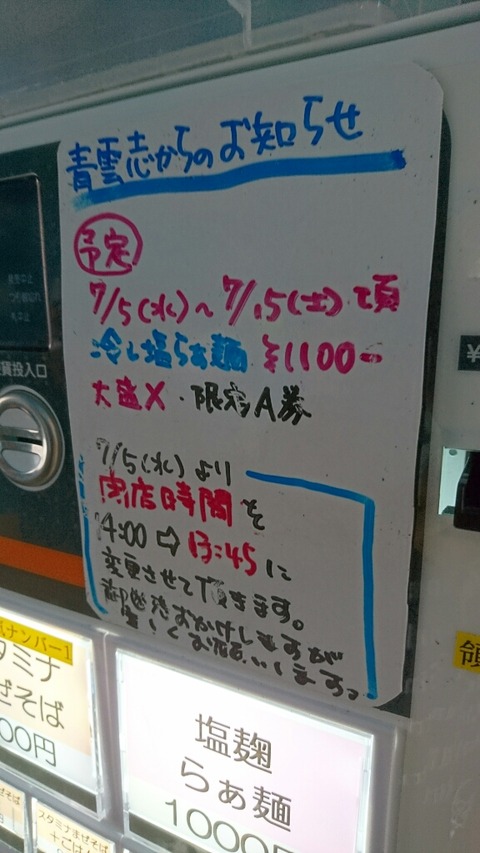 青雲志からのお知らせ
予定
7/5(水)〜7/15(土)頃
冷し塩らぁ麺 ¥1100-
大盛X・限定A券
7/5(水)より
閉店時間を
14:00⇨13:45に
変更させて頂きます。
御迷惑おかけしますが
宜しくお願いします。
貨投入口
気ナンバー1
スタミナ
まぜそば
00円
塩麹
らぁ麺
1000円
スタミナまぜそば
領
¥